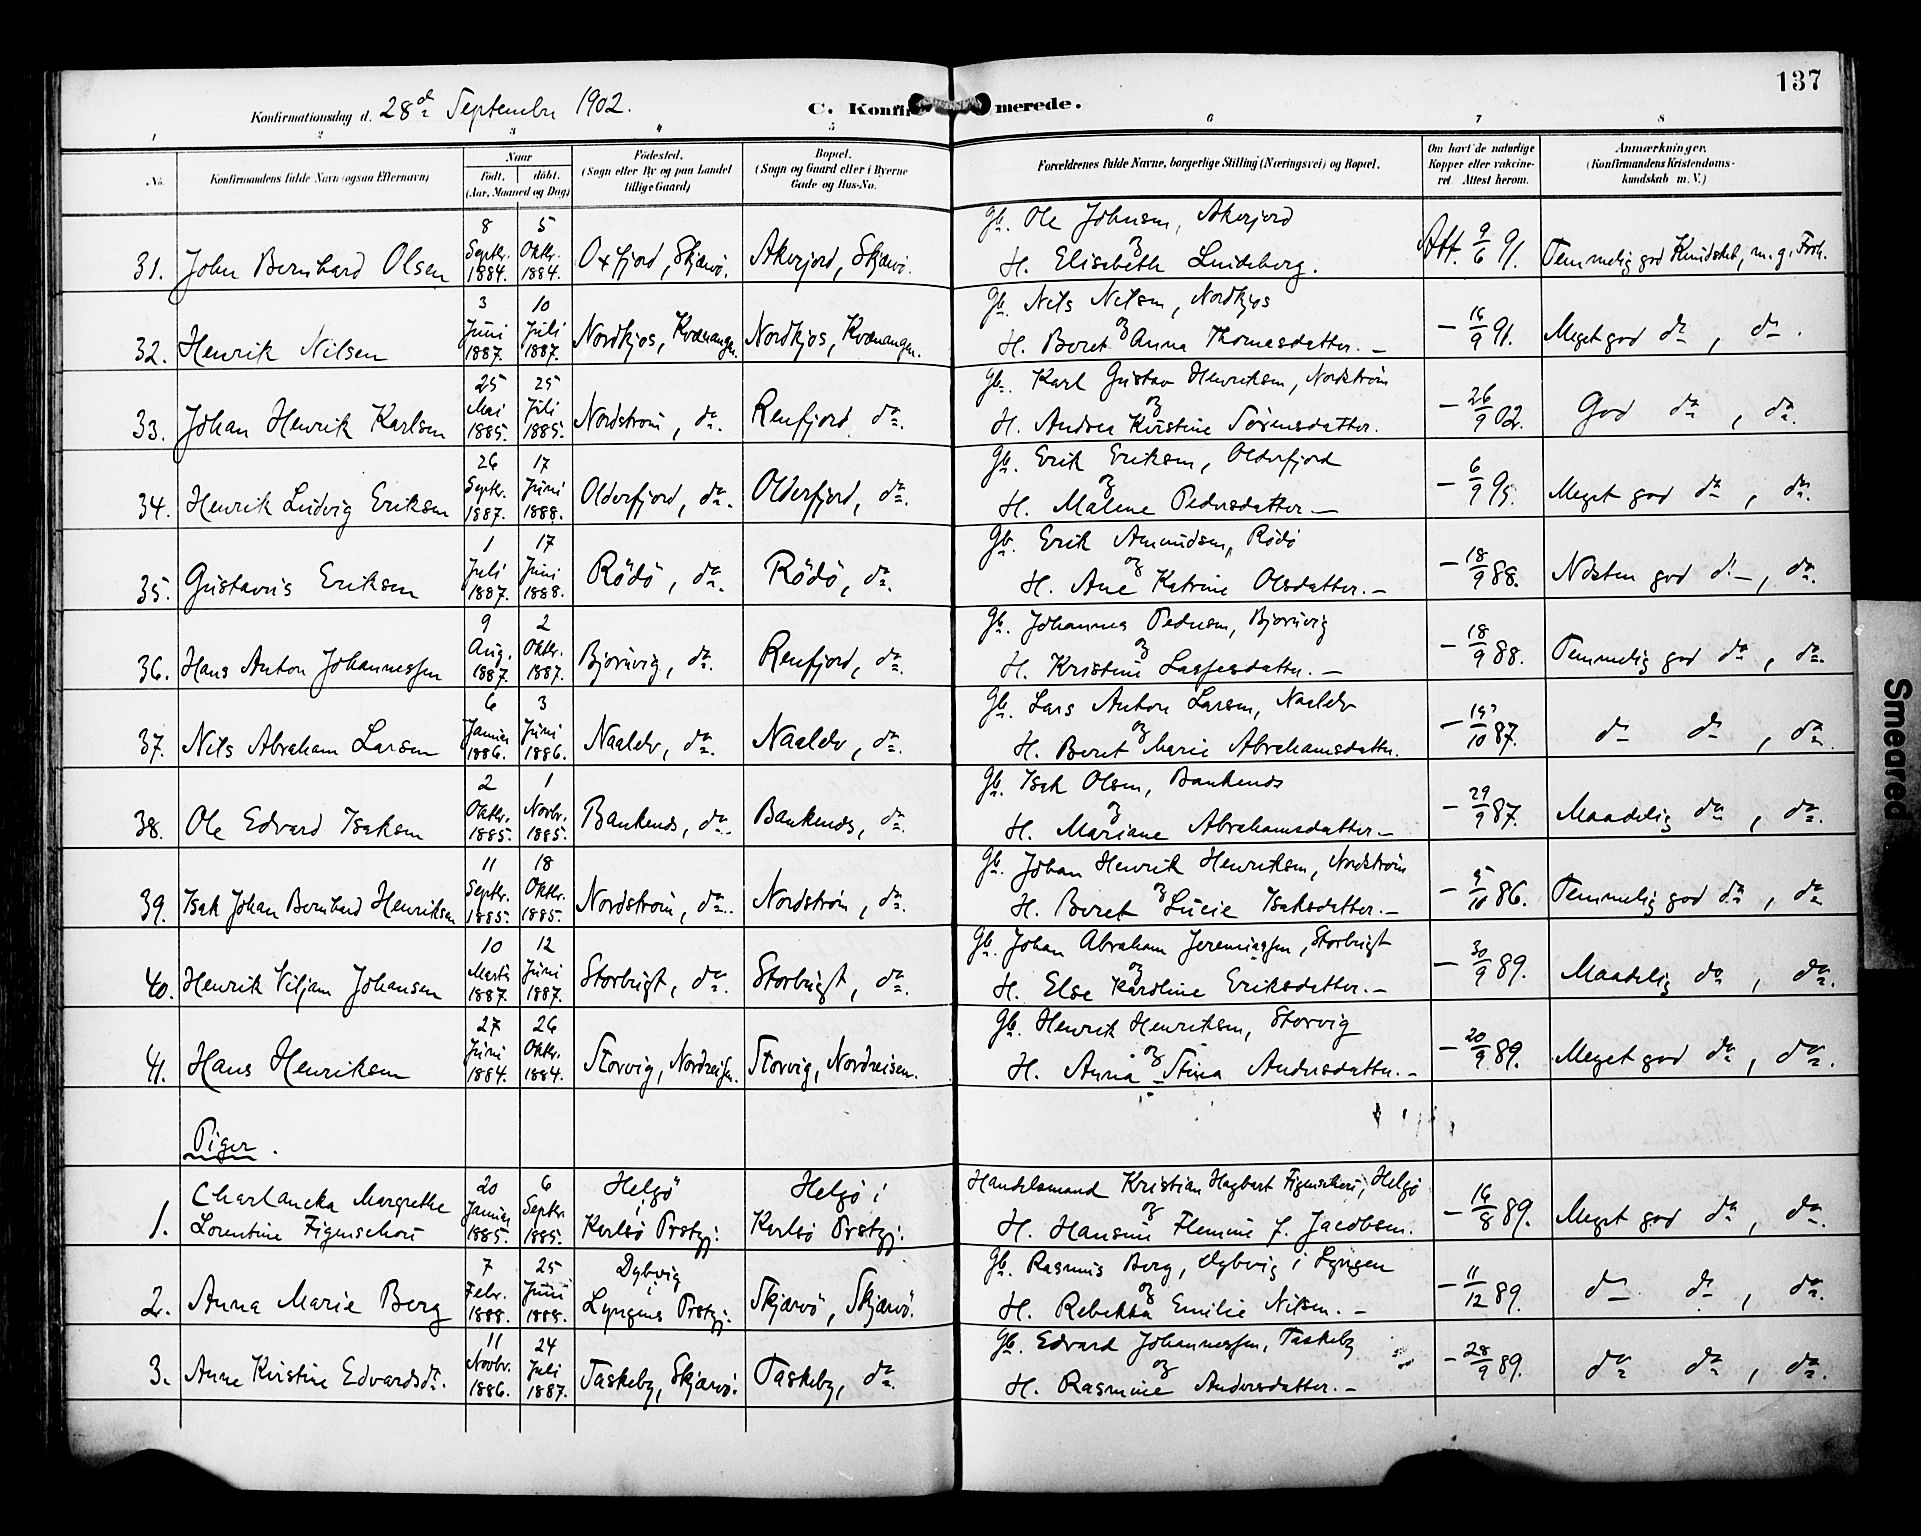 137
Konfirmationsdag d. 28de Septembr 1902.
C. Konfirmerede.
1 2 3 4 5 6 7 8
No. Konfirmandens fulde Navn (ogsaa Efternavn) Naar Født. døbt. (Aar, Maaned og Dag) Fødested. (Sogn eller By og paa Landet tillige Gaard) Bopæl. (Sogn og Gaard eller i Byerne Gade og Hus-No. Forældrenes fulde Navne, borgerlige Stilling (Næringsvei) og Bopæl. Om havt de naturlige Kopper eller vakcineret. Attest herom. Anmærkninger. (Konfirmandens Kristendomskundskab m. V.)
31. John Bernhard Olsen 8 Septbr. 1884. 5 Oktbr. 1884. Oxfjord, Skjærvö. Akerjord, Skjærvö. Gb. Ole Johnsen, Akerjord og H. Elisabeth Lindeberg. Att. 9/6 91. Temmelig god Kundskab, m. g. Forh.
32. Henrik Nilsen 3 Juni 1887. 10 Juli 1887. Nordkjos, Kvænangen. Nordkjos, Kvænangen. Gb. Nils Nilsen, Nordkjos og H. Beret Anna Thomasdatter. — — 16/9 91. Meget god do, do.
33. Johan Henrik Karlsen 25 Mai 1885. 25 Juli 1885. Nordström, do. Renfjord, do. Gb. Karl Gustav Henriksen, Nordström og H. Andrea Kirstine Sørensdatter. — 26/9 02. God do, do.
34. Henrik Ludvig Eriksen 26 Septbr. 1887. 17 Juni 1888. Olderfjord, do. Olderfjord, do. Gb. Erik Eriksen, Olderfjord og H. Malene Pedersdatter — — 6/9 95. Meget god do, do.
35. Gustavus Eriksen 1 Juli 1887. 17 Juni 1888. Rödö, do. Rödö, do. Gb. Erik Amundsen, Rödö og H. Ane Katrine Olsdatter. — — 18/9 88. Næsten god do, do.
36. Hans Anton Johannessen 9 Aug. 1887. 2 Oktbr. 1887. Bjørnvig, do. Renfjord, do. Gb. Johannes Pedersen, Bjørnvig og H. Kristine Lassesdatter. — — 18/9 88. Temmelig god do, do.
37. Nils Abraham Larsen 6 Januar 1886. 3 Juni 1886. Naalelv, do. Naalelv, do. Gb. Lars Anton Larsen, Naalelv og H. Beret Marie Abrahamsdatter. — 15/10 87. do do, do.
38. Ole Edvard Isaksen 2 Oktbr. 1885. 1 Novbr. 1885. Bankenæs, do. Bankenæs, do. Gb. Isak Olsen, Bankenæs og H. Mariane Abrahamsdatter — — 29/9 87. Maadelig do, do.
39. Isak Johan Bernhard Henriksen 11 Septbr. 1885. 18 Oktbr. 1885. Nordström, do. Nordström, do. Gb. Johan Henrik Henriksen, Nordström og H. Beret Lucie Isaksdatter. — — 5/10 86. Temmelig god do, do
40. Henrik Viljam Johansen 10 Marts 1887. 12 Juni 1887. Storbugt, do. Storbugt, do. Gb. Johan Abraham Jeremiassen, Storbugt og H. Else Karoline Eriksdatter. — — 30/9 89. Maadelig do, do.
41. Hans Henriksen 27 Juni 1884. 26 Oktbr. 1884. Storvig, Nordreisen. Storvig, Nordreisen. Gb. Henrik Henriksen, Storvig og H. Anna Stina Andersdatter. — — 20/9 89. Meget god do, do.
Piger.
1. Charlancka Margrethe Lorentine Figenschou 20 Januar 1885. 6 Septbr 1885. Helgö i Karlsö Prstgj: Helgö i Karlsö Prstgj: Handelsmand Kristian Hagbart Figenschou, Helgö og H. Hansine Flemine f. Jacobsen. — 16/8 89. Meget god do, do.
2. Anna Marie Berg 7 Febr. 1888. 25 Juni 1888. Dybvig i Lyngens Prstgj: Skjærvö, Skjærvö. Gb. Rasmus Berg, Dybvig i Lyngen og H. Rebekka Emilie Nilsen. — — 11/12 89. do do, do.
3. Anne Kirstine Edvardsdr. 11 Novbr. 1886. 24 Juli 1887. Taskeby, Skjærvö. Taskeby, do. Gb. Edvard Johannessen, Taskeby og H. Rasmine Andersdatter. — — 28/9 89. do do, do.
Smeared